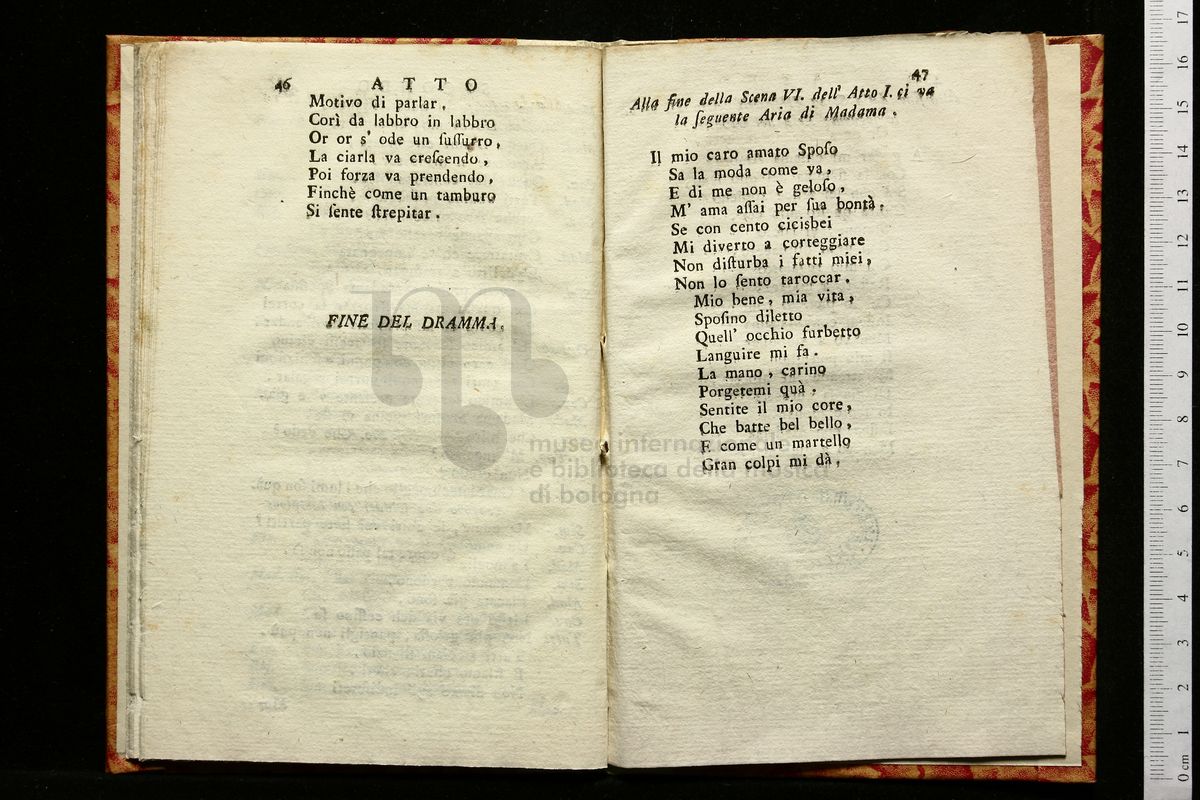 46 ATTO
Motivo di parlar,
Corì da labbro in labbro
Or or s' ode un ſuſſurro,
La ciarla va creſcendo,
Poi forza va prendendo,
Finchè come un tamburo
Si ſente ſtrepitar.
FINE DEL DRAMMA.
47
Alla fine della Scena VI. dell' Atto I. ci va
la ſeguente Aria di Madama.
Il mio caro amato Spoſo
Sa la moda come va,
E di me non è geloſo,
M' ama aſſai per ſua bontà.
Se con cento cicisbei
Mi diverto a corteggiare
Non diſturba i fatti miei,
Non lo ſento taroccar.
Mio bene, mia vita,
Spoſino diletto
Quell' occhio furbetto
Languire mi fa.
La mano, carino
Porgetemi quà.
Sentite il mio core,
Che batte bel bello,
E come un martello
Gran colpi mi dà,
museo internazionale
e biblioteca della musica
di bologna
0 cm 1 2 3 4 5 6 7 8 9 10 11 12 13 14 15 16 17